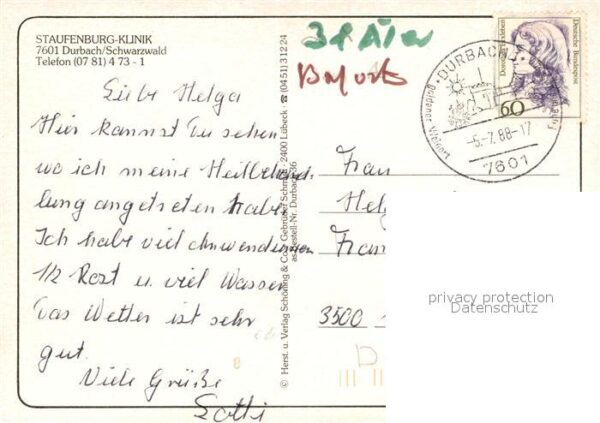 STAUFENBURG-KLINIK
7601 Durbach/Schwarzwald
Telefon (07 81) 4 73 - 1
Liebe Helga
Hier kannst Du sehen
wo ich meine Heilbehand-
lung angetreten habe.
Ich habe viel
1/2 Kost u. viel Wasser
Das Wetter ist sehr
gut.
Viele Grüße
Lotti
© Herst. u. Verlag Schöning & Co + Gebrüder Schmidt · 2400 Lübeck · ☎ (04 51) 3 12 24
Bestell-Nr. Durb
Deutsche Bundespost
60
DURBACH
5.-7.88-17
7601
Frau
3500
privacy protection
Datenschutz